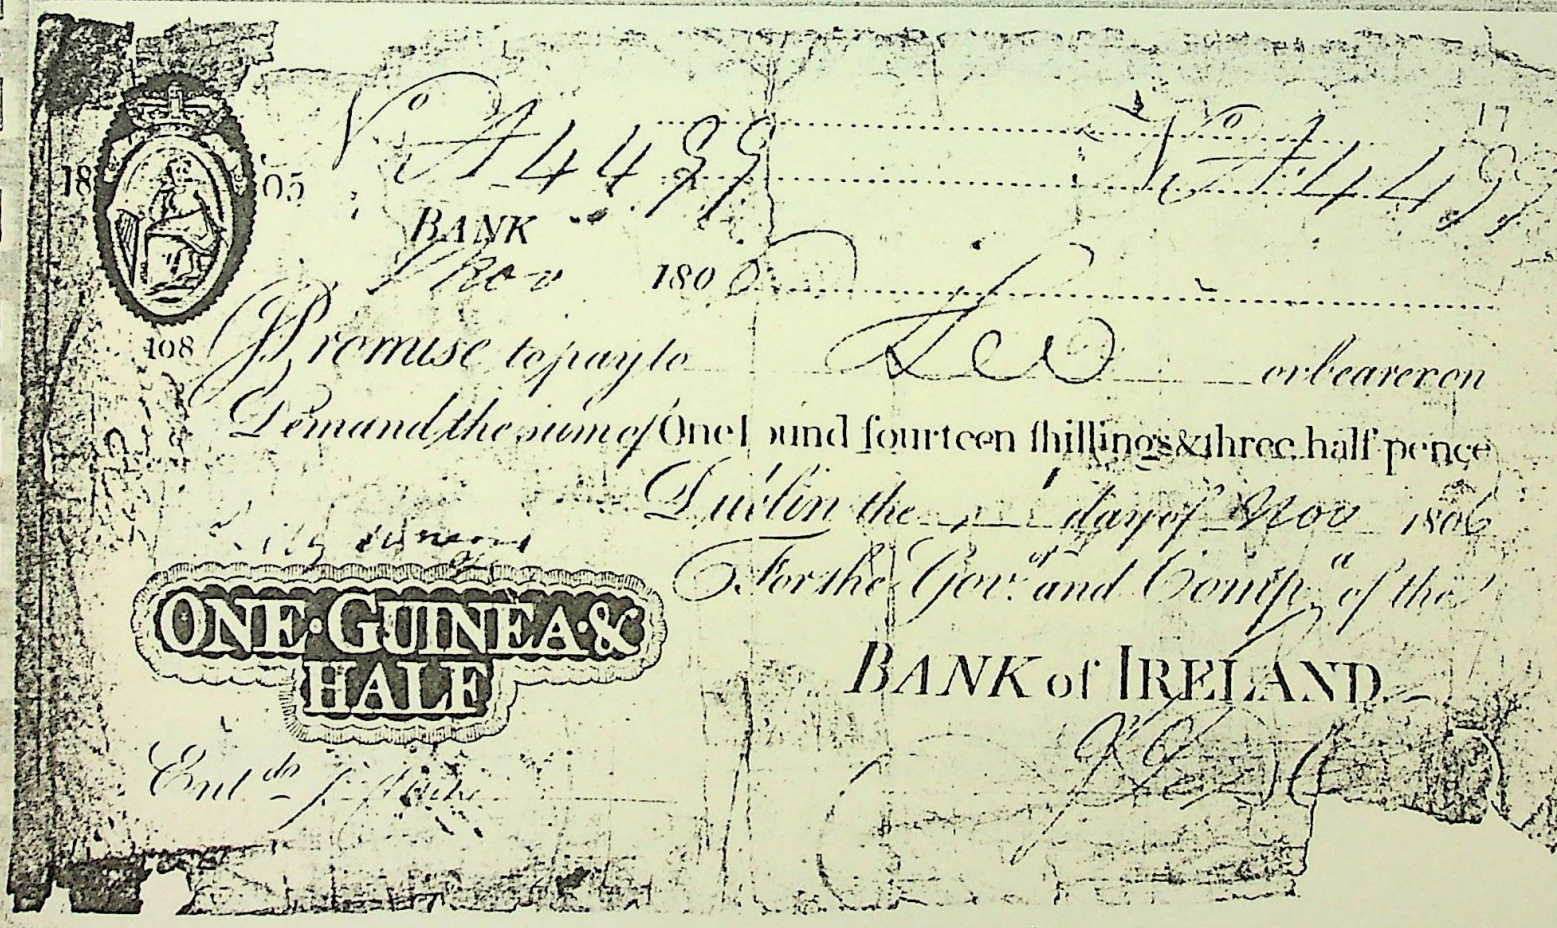 No A 4499 No A 4499 17
18 05
BANK
1 Nov 1806
108 Promise to pay to or bearer on
Demand the sum of One Pound fourteen ſhillings & three half pence
Dublin the 1 day of Nov 1806
For the Govr. and Compa. of the
ONE·GUINEA·&
HALF
BANK of IRELAND
Entd.